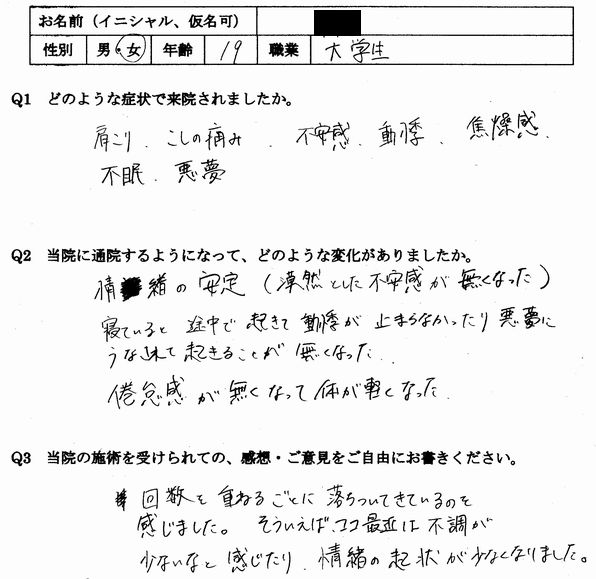 お名前（イニシャル、仮名可）
性別 男・女 年齢 19 職業 大学生
Q1 どのような症状で来院されましたか。
肩こり、こしの痛み、不安感、動悸、焦燥感、
不眠、悪夢
Q2 当院に通院するようになって、どのような変化がありましたか。
情緒の安定（漠然とした不安感が無くなった）
寝ていると途中で起きて動悸が止まらなかったり悪夢に
うなされて起きることが無くなった。
倦怠感が無くなって体が軽くなった。
Q3 当院の施術を受けられての、感想・ご意見をご自由にお書きください。
回数を重ねるごとに落ちついてきているのを
感じました。そういえば、ココ最近は不調が
少ないなと感じたり、情緒の起状が少なくなりました。